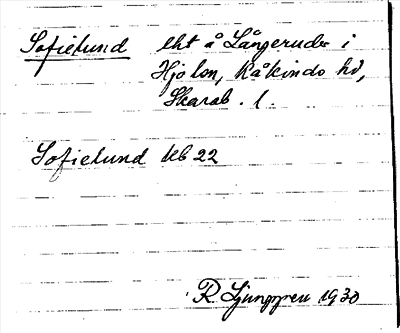 Sofielund lht å Långerudor i
Hjo lsn, Kåkinds hd,
Skarab. l.
Sofielund kb 22
R. Ljunggren 1930